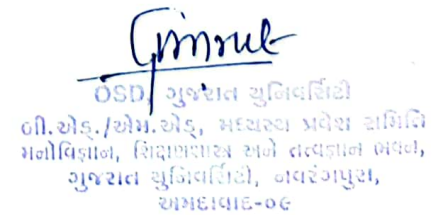 OSD, ગુજરાત યુનિવર્સિટી
બી.એડ્./એમ.એડ્, મધ્યસ્થ પ્રવેશ સમિતિ
મનોવિજ્ઞાન, શિક્ષણશાસ્ત્ર અને તત્વજ્ઞાન ભવન,
ગુજરાત યુનિવર્સિટી, નવરંગપુરા,
અમદાવાદ-૦૯